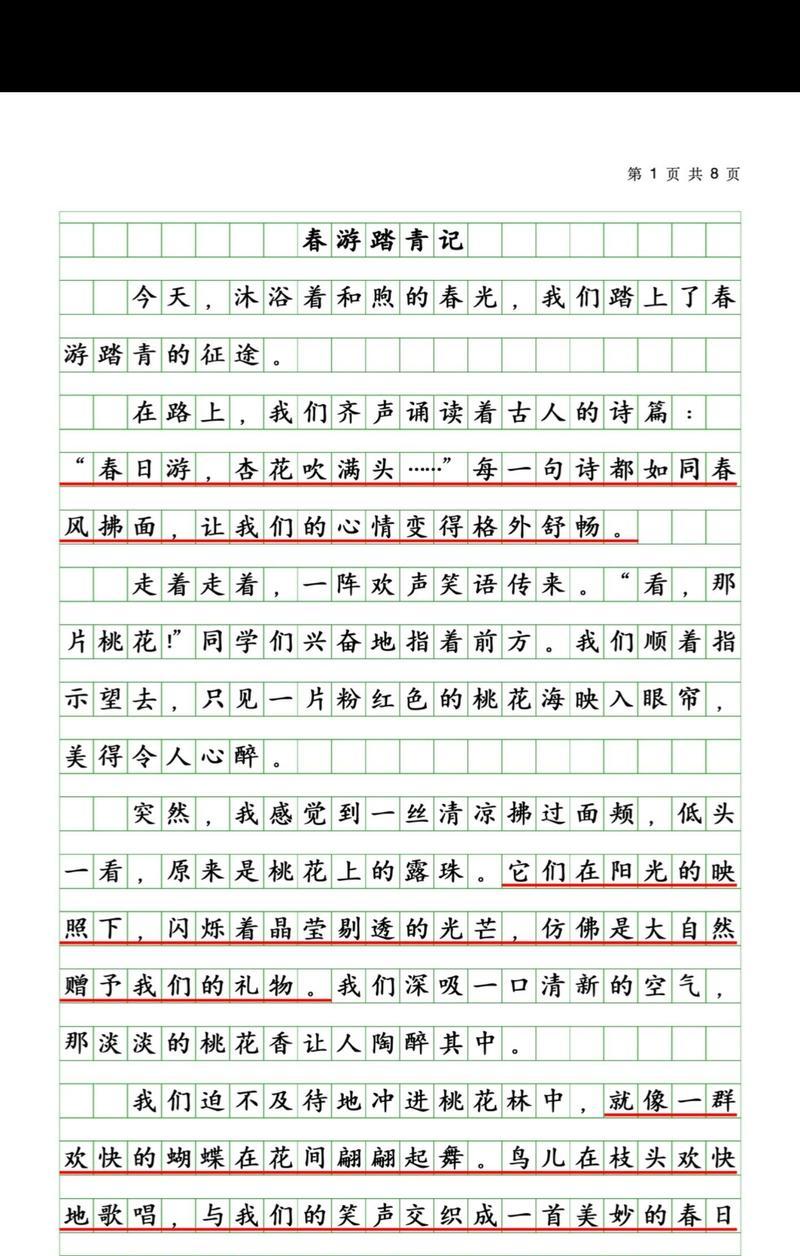 第 1 页 共 8 页
春游踏青记
今天，沐浴着和煦的春光，我们踏上了春
游踏青的征途。
在路上，我们齐声诵读着古人的诗篇：
“春日游，杏花吹满头……”每一句诗都如同春
风拂面，让我们的心情变得格外舒畅。
走着走着，一阵欢声笑语传来。“看，那
片桃花！”同学们兴奋地指着前方。我们顺着指
示望去，只见一片粉红色的桃花海映入眼帘，
美得令人心醉。
突然，我感觉到一丝清凉拂过面颊，低头
一看，原来是桃花上的露珠。它们在阳光的映
照下，闪烁着晶莹剔透的光芒，仿佛是大自然
赠予我们的礼物。我们深吸一口清新的空气，
那淡淡的桃花香让人陶醉其中。
我们迫不及待地冲进桃花林中，就像一群
欢快的蝴蝶在花间翩翩起舞。鸟儿在枝头欢快
地歌唱，与我们的笑声交织成一首美妙的春日